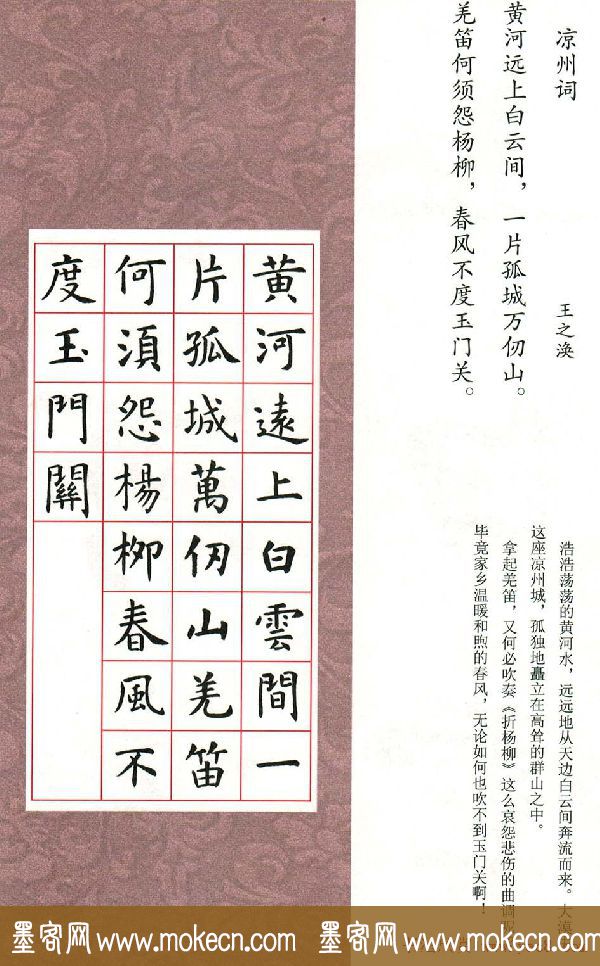 凉州词 王之涣
黄河远上白云间，一片孤城万仞山。
羌笛何须怨杨柳，春风不度玉门关。
浩浩荡荡的黄河水，远远地从天边白云间奔流而来。大漠
这座凉州城，孤独地矗立在高耸的群山之中。
拿起羌笛，又何必吹奏《折杨柳》这么哀怨悲伤的曲调呢
毕竟家乡温暖和煦的春风，无论如何也吹不到玉门关啊！
黄河遠上白雲間一
片孤城萬仞山羌笛
何須怨楊柳春風不
度玉門關
墨客网 www.mokecn.com 墨客网 www.mokecn.com